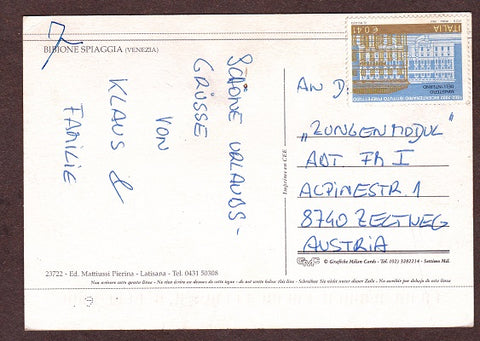 BIBIONE SPIAGGIA (VENEZIA)
SCHÖNE URLAUBS-
GRÜSSE
VON
KLAUS &
FAMILIE
ITALIA
€ 0,41
MINISTERO
DELL'INTERNO
AN D.
"ZUNGENMODUL"
ABT. FM I
ALPINESTR. 1
8740 ZELTWEG
AUSTRIA
Imprime en CEE
GMC © Grafiche Milan Cards - Tel. (02) 3282214 - Settimo Mil.
23722 - Ed. Mattiussi Pierina - Latisana - Tel. 0431 50308
Non scrivere sotto questa linea - Ne rien écrire au dessous de cette ligne - do not write below this line - Schreiben Sie nicht unter dieser Zeile - No escribir por debajo de esta linea